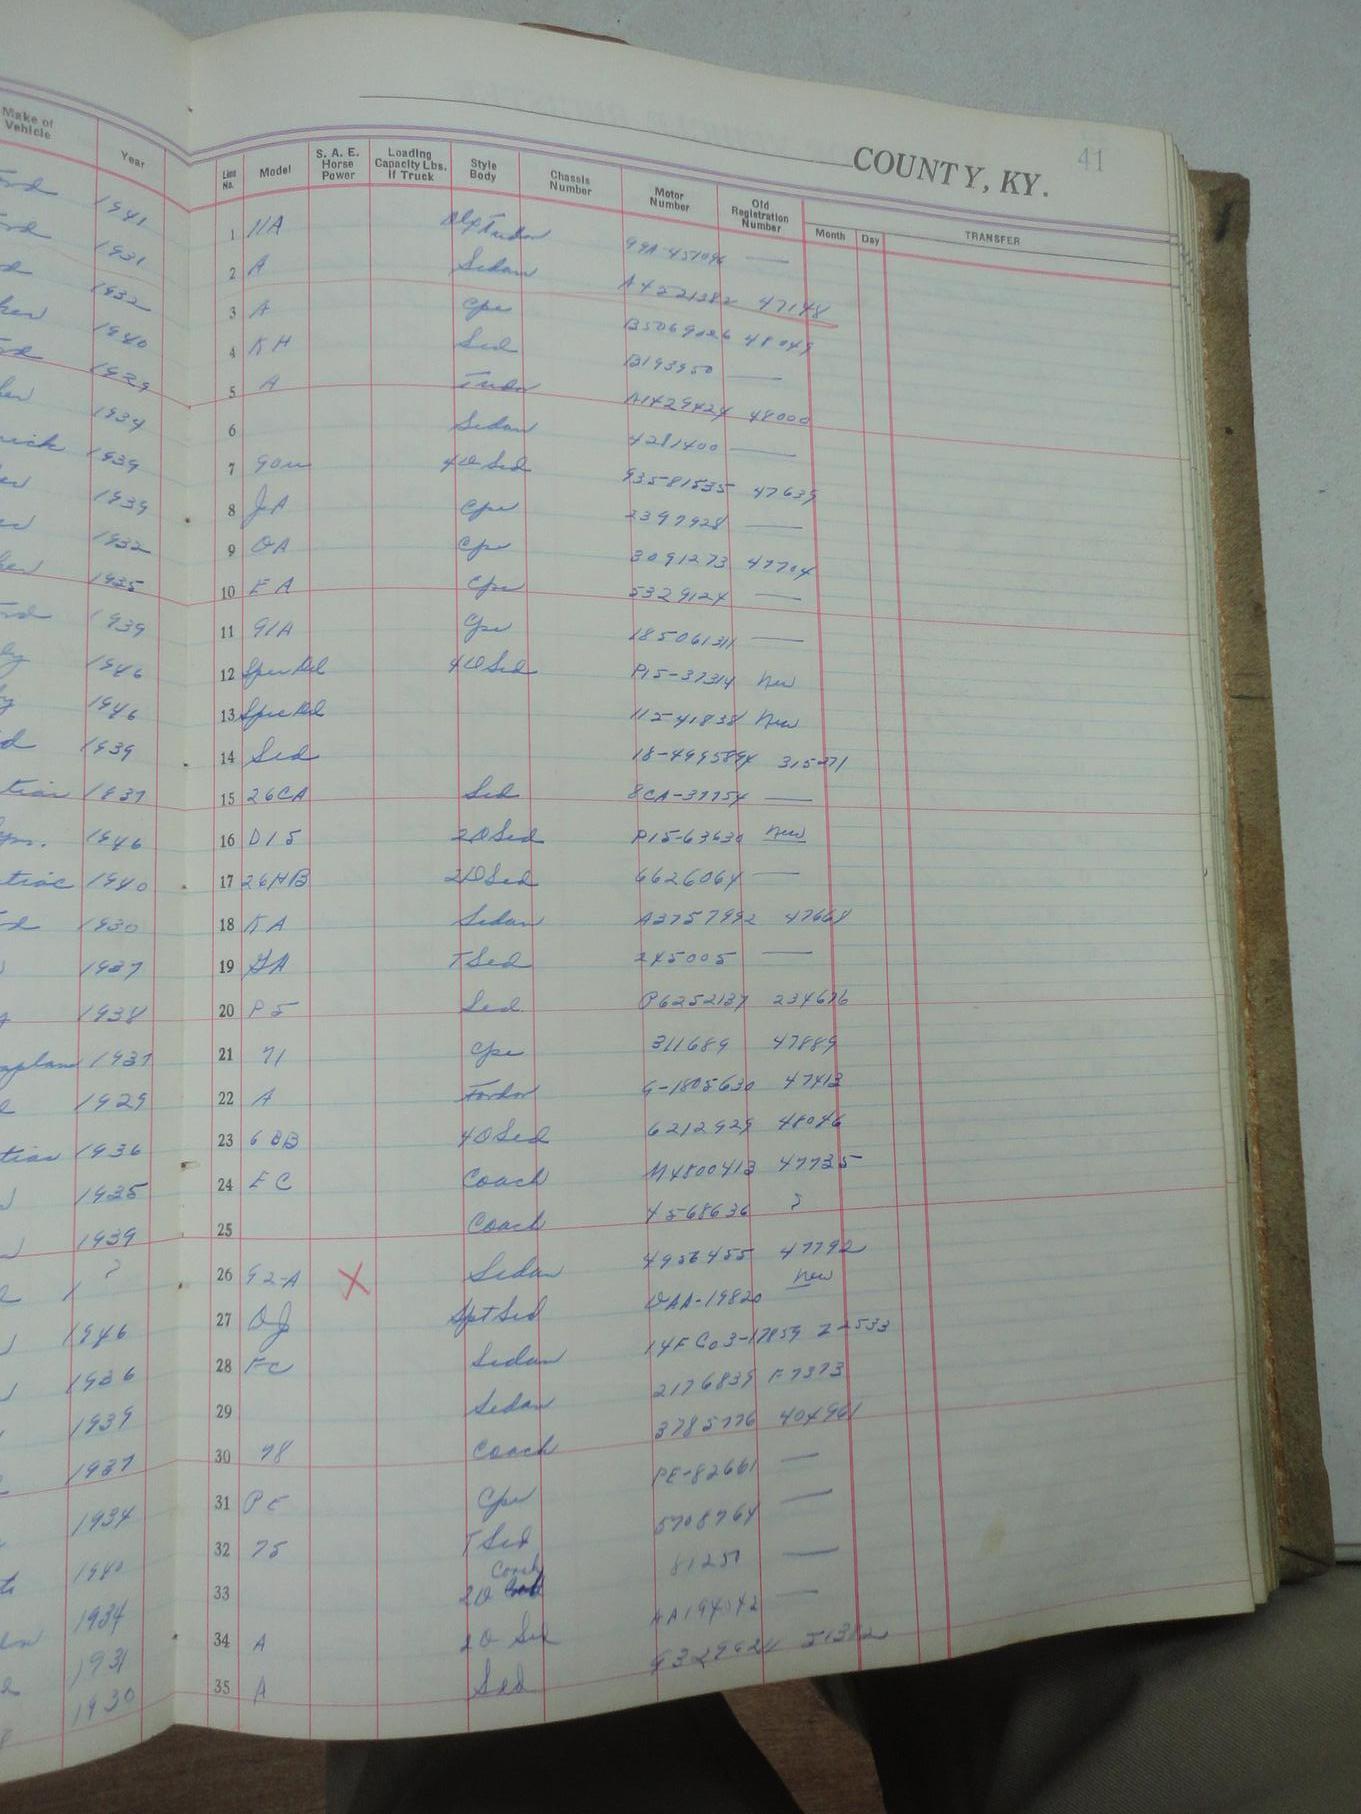 COUNTY, KY. 41
Make of Vehicle Year Line No. Model S. A. E. Horse Power Loading Capacity Lbs. If Truck Style Body Chassis Number Motor Number Old Registration Number TRANSFER
Month Day
1941 1 11A Tudor 99A-457096 —
1931 2 A Sedan A4221382 47148
1932 3 A Cpe B5069026 48049
1940 4 KH Sed B193950 —
1929 5 A Tudor A1429424 48000
1934 6 Sedan 4281400 —
1939 7 90u 4D Sed 93581535 47639
1939 8 JA Cpe 2397928 —
1932 9 DA Cpe 3091273 47704
1935 10 EA Cpe 5329124 —
1939 11 91A Cpe 185061311 —
1946 12 Spec Del 4D Sed P15-37314 New
1946 13 Spec Del 112-41838 New
1939 14 Sed 18-4995894 315271
1937 15 26CA Sed 8CA-37754 —
1946 16 D15 2D Sed P15-63630 New
1940 17 26HB 2D Sed 6626064 —
1930 18 KA Sedan A3757992 47668
1937 19 GA T Sed 245005 —
1938 20 P5 Sed P6252137 234676
1937 21 71 Cpe 311689 47889
1929 22 A Fordor G-1805630 47413
1936 23 6BB 4D Sed 6212929 48046
1935 24 EC Coach M4800413 47735
1939 25 Coach 4568636 ?
? 26 92-A X Sedan 4956455 47792
1946 27 DJ Spt Sed DAA-19820 New
1936 28 FC Sedan 14FC03-17859 22533
1939 29 Sedan 2176839 F7373
1937 30 78 Coach 3785776 404961
1934 31 PE Cpe PE-82661 —
1940 32 75 T Sed 5708764 —
1934 33 2D Coach 81251 —
1931 34 A 2D Sed AA194342 —
1930 35 A Sed 51312